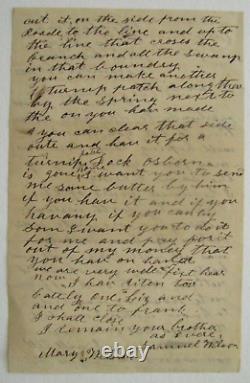 out it, on the side from the
Roade to the line and up to
the line that croses the
beanch and all the swamp
in that boundry
you can make another
turnup patch along ther
by the spring next to
the on you hav made
if you can clear that side
oute and hav it for a
turnip Jock Osborn
is gone I want you to send
me some butter by him
if you hav it and if you
havany, if you canty
Som I want you to do it
for me and pay for it
out of my money that
you hav on hand
we are very well first hear
now I hav riten two
Lately one Liz and
and one to frank
I shall close
I remain your brotha
as evere
Mary Wilson Samuel Wilson
© 164art